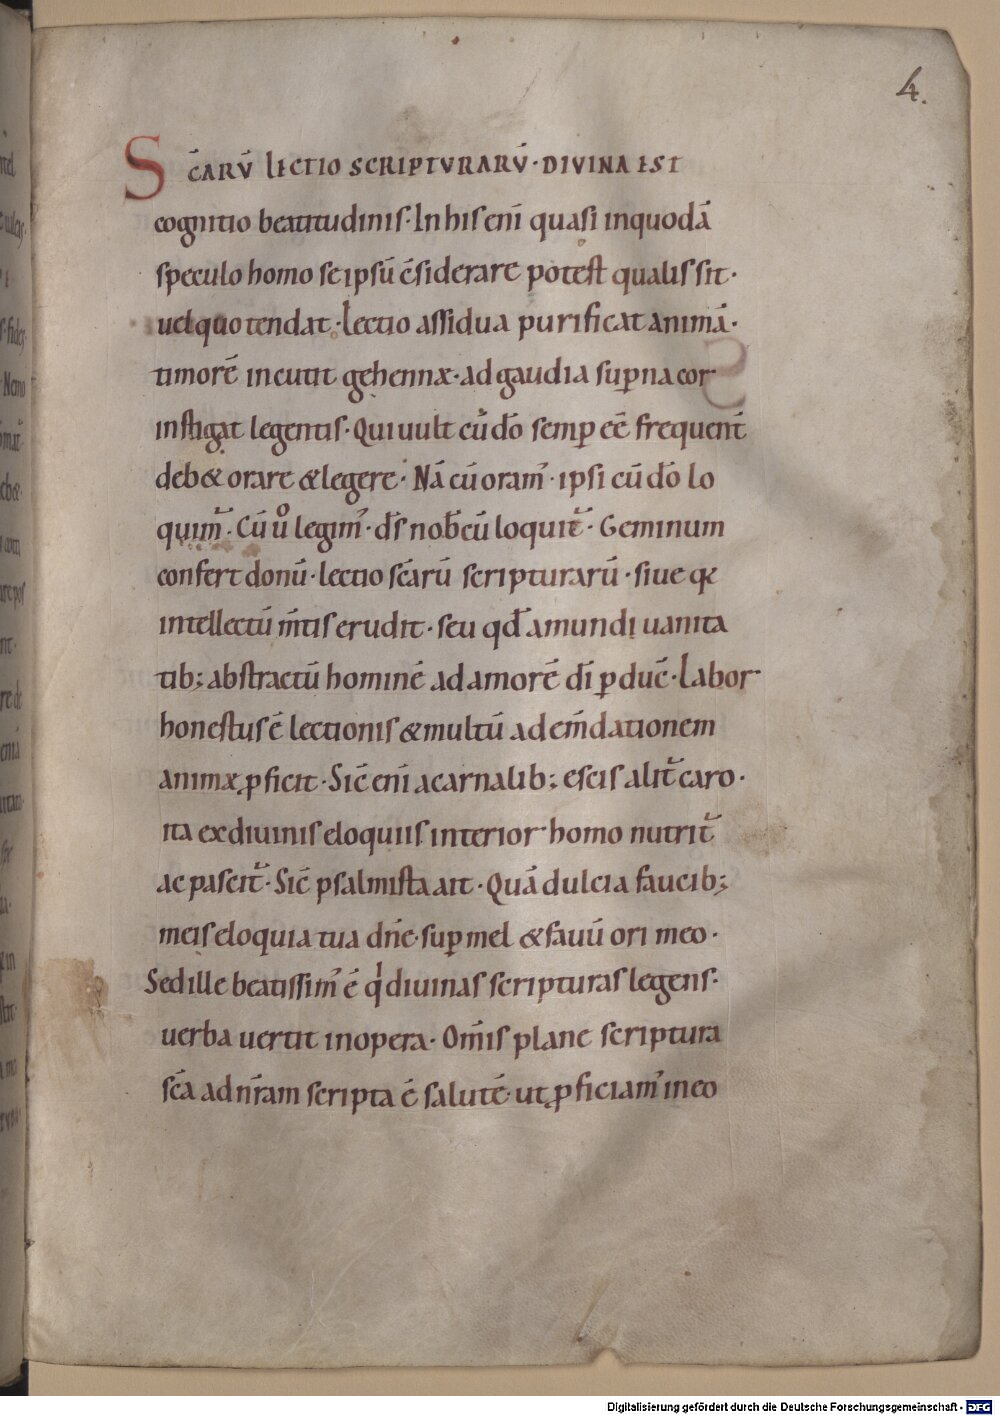 4.
SC̄ARV̄ LECTIO SCRIPTVRARV̄· DIVINA EST
cognitio beatitudinis· In his enī quasi in quodā
speculo homo se ipsū c̄siderare potest qualis sit·
uel quo tendat· Lectio assidua purificat animā·
timorē incutit gehennæ· ad gaudia sup̄na cor
instigat legentis· Qui uult cū dō semp̄ eē frequent̄
deb& orare & legere· Nā cū oram᾽· ipsi cū dō lo
quim̄· Cū ů legim᾽· d̄s nob̄cū loquit̄· Geminum
confert donū· lectio sc̄arū scripturarū· siue q̄
intellectū m̄tis erudit· seu qd̄ a mundi uanita
tib; abstractū hominē ad amorē dī p̱ducē· Labor
honestus ē lectionis & multū ad em̄dationem
animæ ꝓficit· Sic̄ enī a carnalib; escis alit̄ caro·
ita ex diuinis eloquiis interior homo nutrit̄
ac pascit̄· Sic̄ psalmista ait· Quā dulcia faucib;
meis eloquia tua dn̄e· sup̄ mel & fauū ori meo·
Sed ille beatissim᾽ ē qi diuinas scripturas legens·
uerba uertit in opera· Om̄is plane scriptura
sc̄a ad nr̄am scripta ē salutē· ut ꝓficiam᾽ in eo
Digitalisierung gefördert durch die Deutsche Forschungsgemeinschaft - DFG